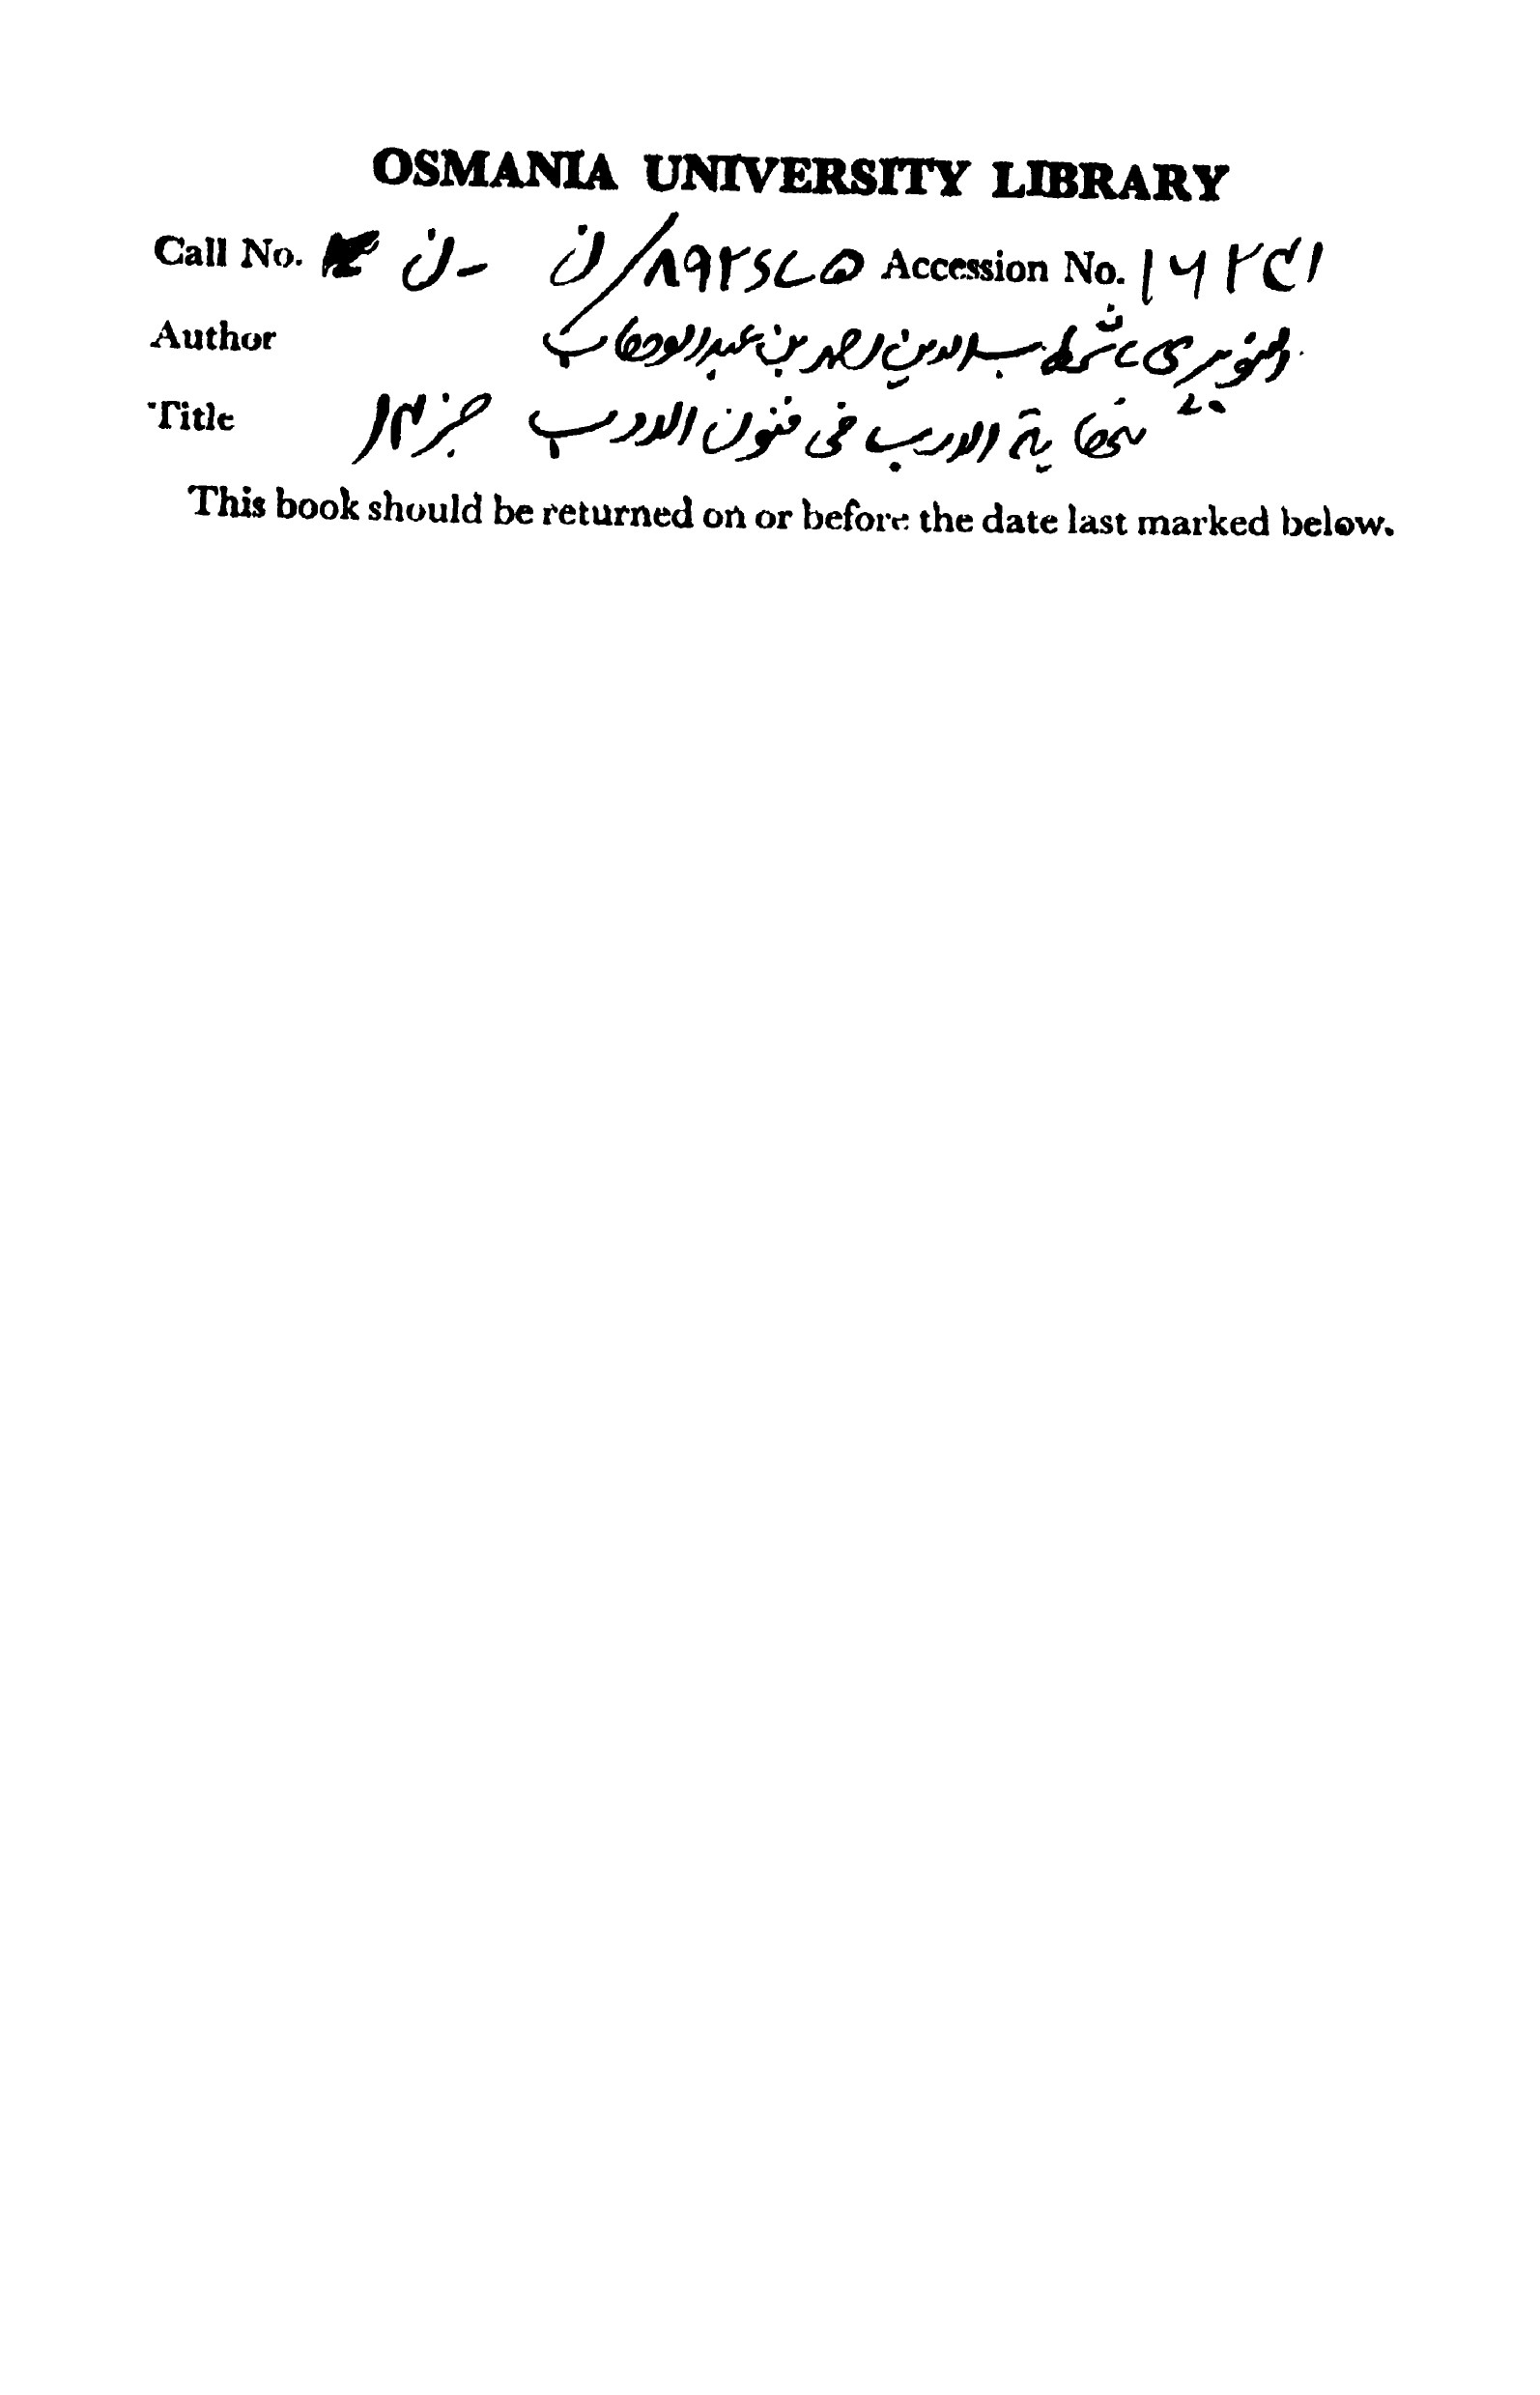 OSMANIA UNIVERSITY LIBRARY
Call No. ن - ن/٨٩٢٤٧٥ Accession No. ١٦٢٤١
Author النويرى، شهاب الدين احمد بن عبدالوهاب
Title نهاية الارب فى فنون الادب جز
This book should be returned on or before the date last marked below.